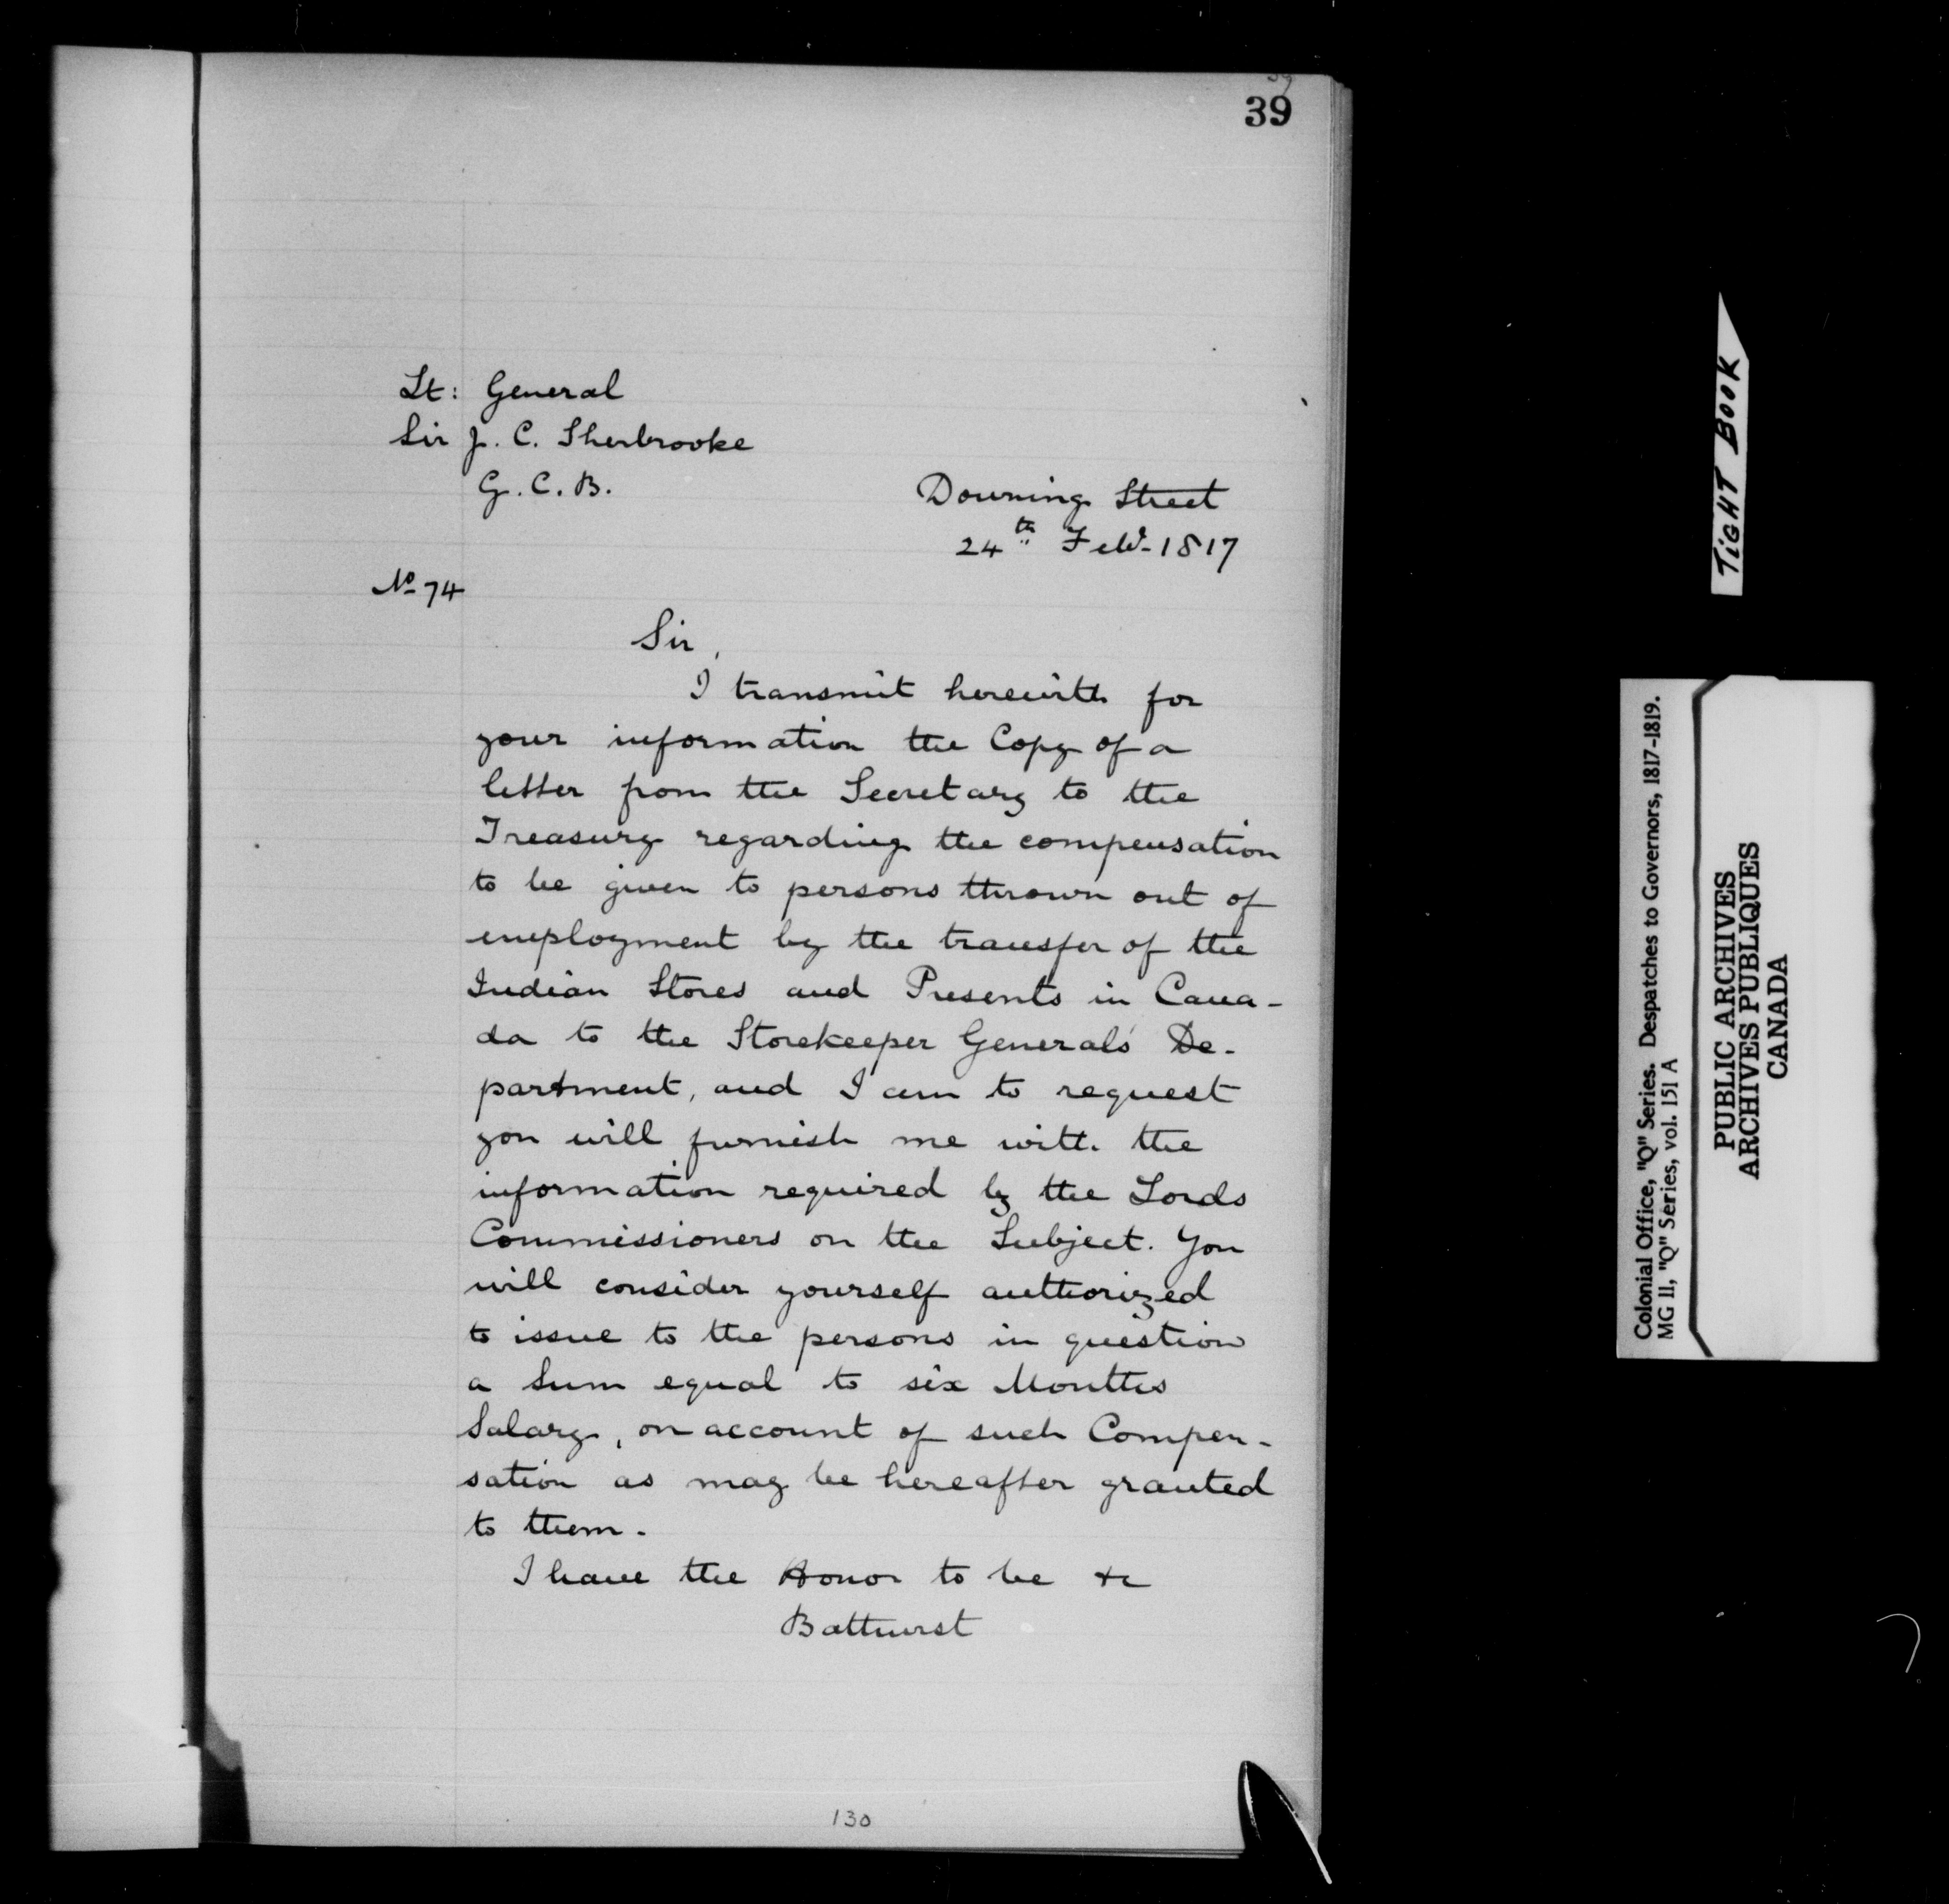 39
39
Lt: General
Sir J. C. Sherbrooke
G. C. B.
Downing Street
24th Feby. 1817
No 74
Sir,
I transmit herewith for
your information the Copy of a
letter from the Secretary to the
Treasury regarding the compensation
to be given to persons thrown out of
employment by the transfer of the
Indian Stores and Presents in Cana-
da to the Storekeeper General's De-
partment, and I am to request
you will furnish me with the
information required by the Lords
Commissioners on the Subject. You
will consider yourself authorized
to issue to the persons in question
a Sum equal to six Months
Salary, on account of such Compen-
sation as may be hereafter granted
to them.
I have the Honor to be &c
Bathurst
130
TIGHT BOOK
Colonial Office, "Q" Series. Despatches to Governors, 1817-1819.
MG 11, "Q" Series, vol. 151 A
PUBLIC ARCHIVES
ARCHIVES PUBLIQUES
CANADA